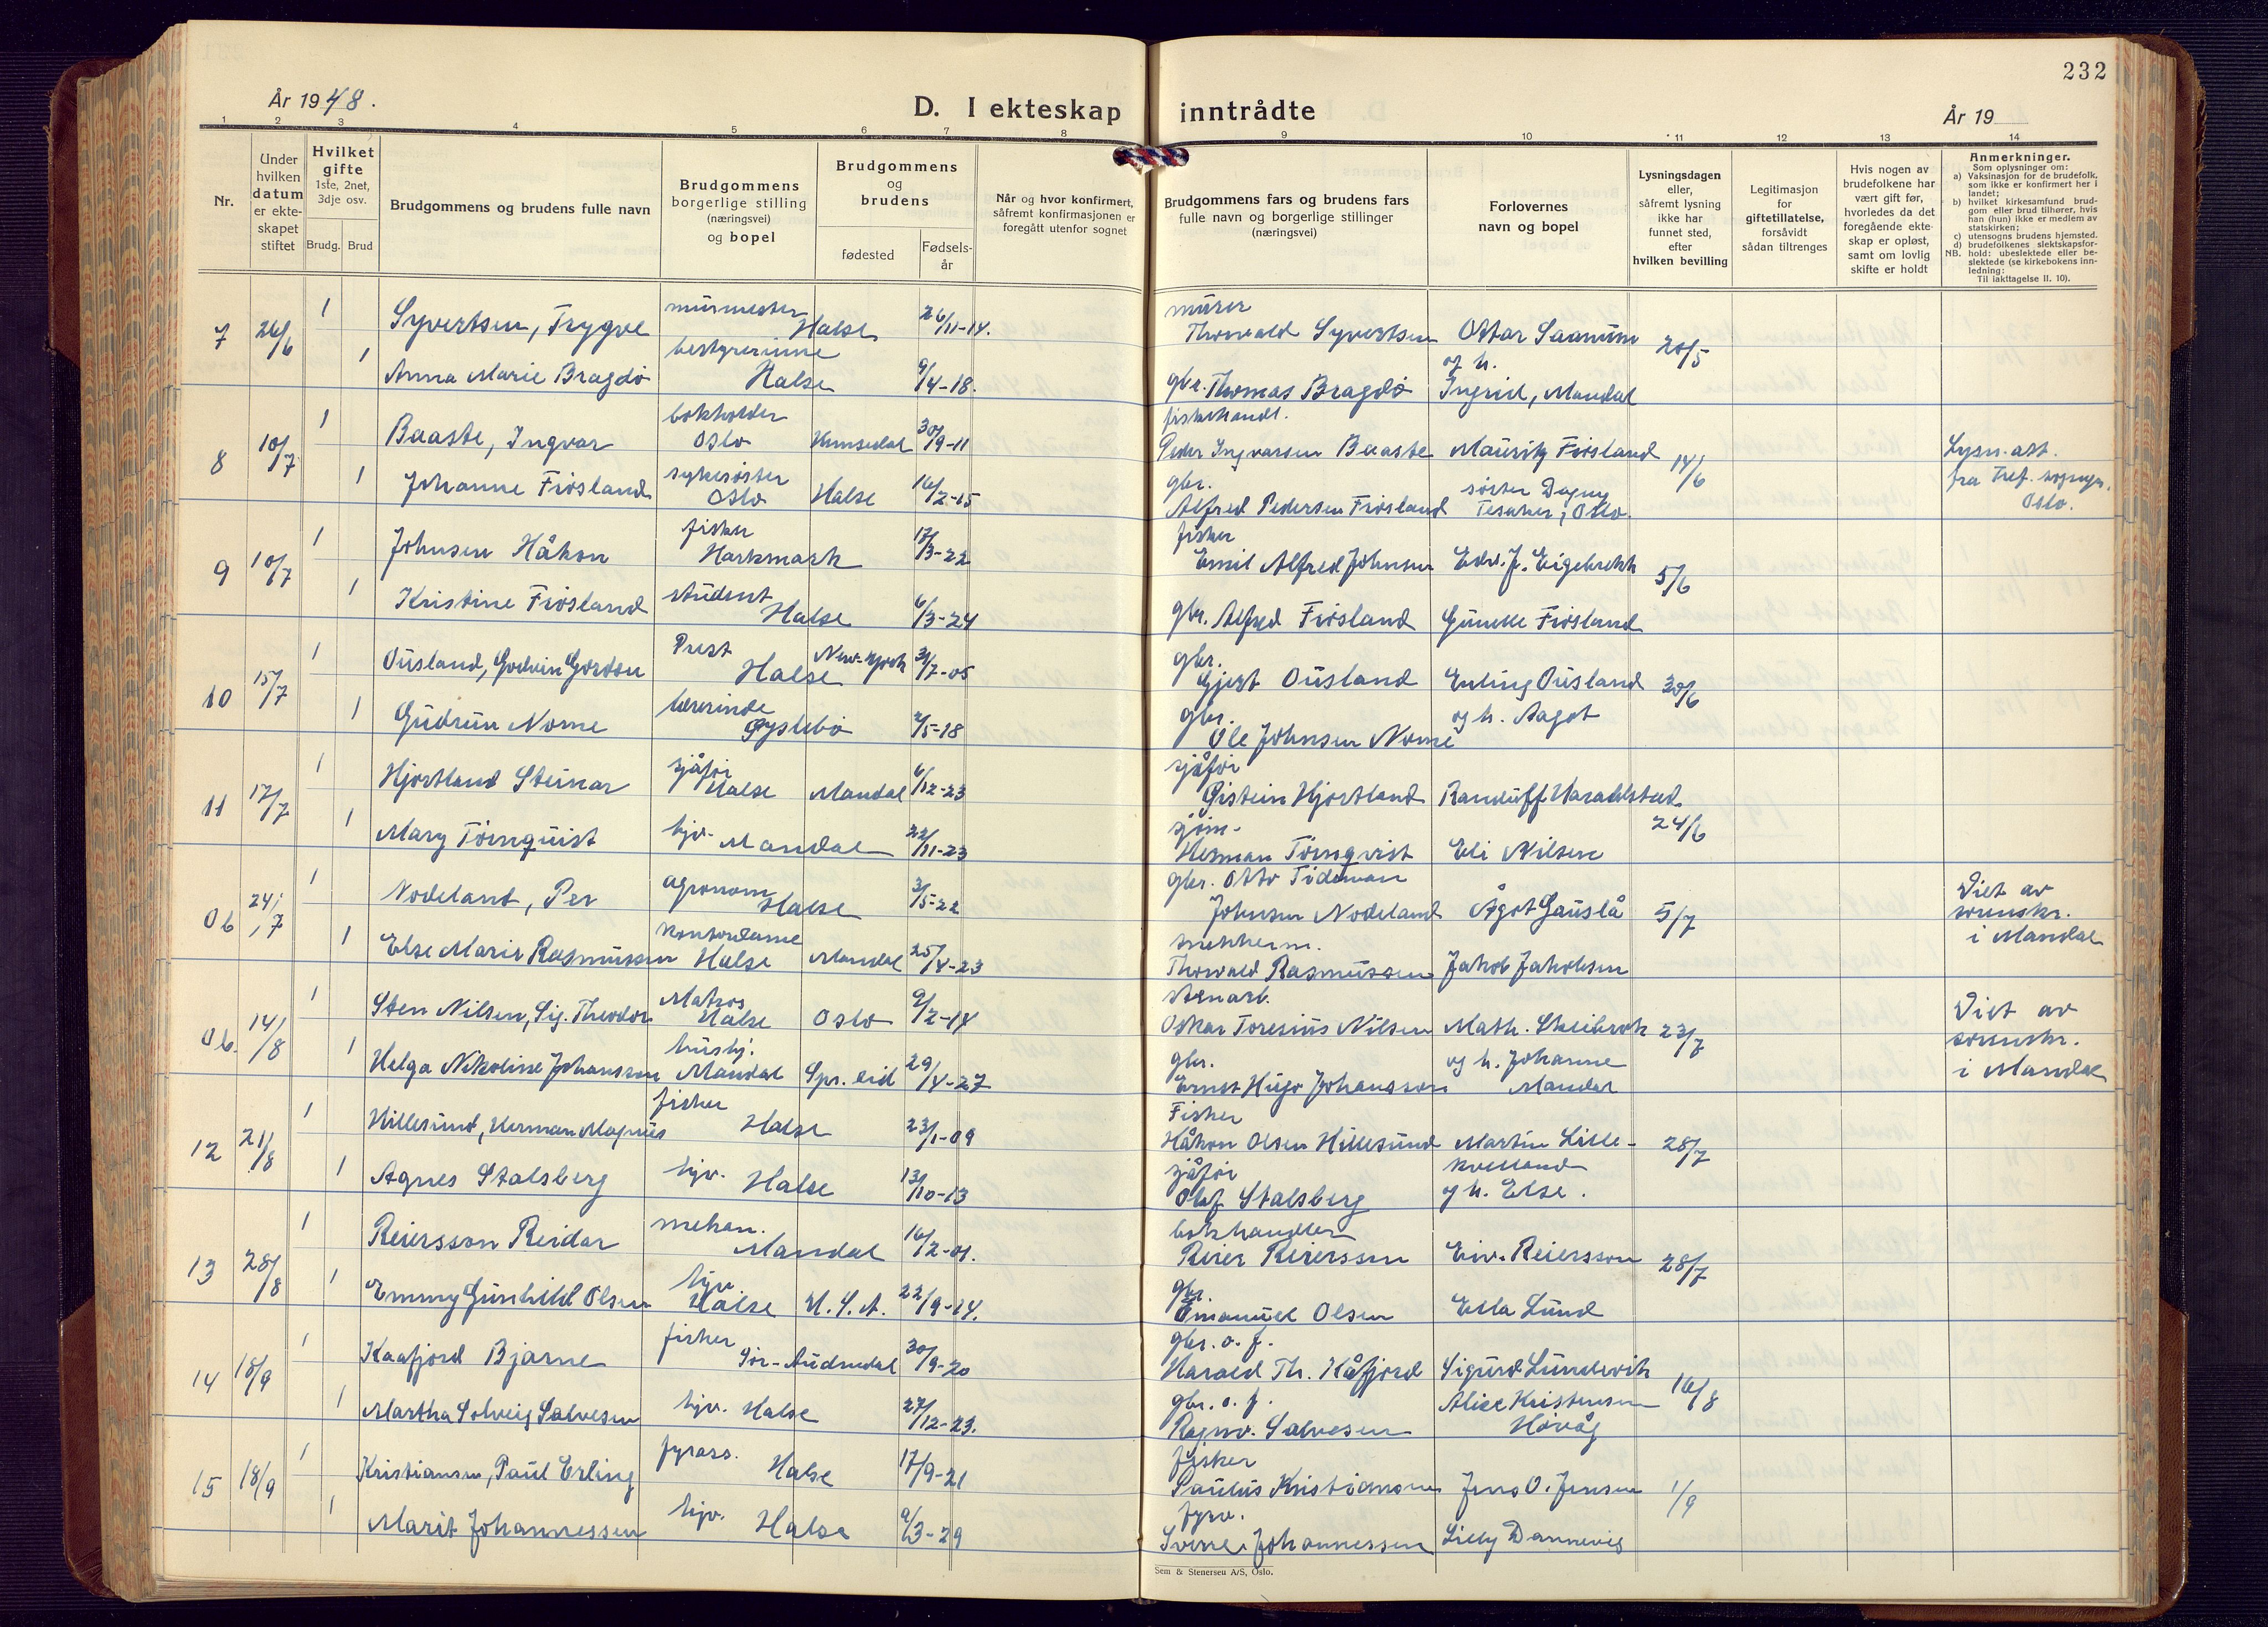 232
År 1948.
D. I ekteskap inntrådte
År 19
1 2 3 4 5 6 7 8 9 10 11 12 13 14
Nr.
Under hvilken datum er ekteskapet stiftet
Hvilket gifte 1ste, 2net, 3dje osv.
Brudg. Brud
Brudgommens og brudens fulle navn
Brudgommens borgerlige stilling (næringsvei) og bopel
Brudgommens og brudens
fødested
Fødselsår
Når og hvor konfirmert, såfremt konfirmasjonen er foregått utenfor sognet
Brudgommens fars og brudens fars fulle navn og borgerlige stillinger (næringsvei)
Forlovernes navn og bopel
Lysningsdagen eller, såfremt lysning ikke har funnet sted, efter hvilken bevilling
Legitimasjon for giftetillatelse, forsåvidt sådan tiltrenges
Hvis nogen av brudefolkene har vært gift før, hvorledes da det foregående ekteskap er opløst, samt om lovlig skifte er holdt
Anmerkninger.
Som oplysninger om:
a) Vaksinasjon for de brudefolk, som ikke er konfirmert her i landet;
b) hvilket kirkesamfund brudgom eller brud tilhører, hvis han (hun) ikke er medlem av statskirken;
c) utensogns brudens hjemsted.
d) brudefolkenes slektskapsforhold: ubeslektede eller beslektede (se kirkebokens innledning:
NB.
Til iakttagelse II. 10).
7 26/6 1 Syvertsen, Trygve murmester Halse 26/11-14. murer Thorvald Syvertsen Ottar Saanum og h. 20/5
1 Anna Marie Bragdø bestyrerinne Halse 9/4-18. gbr. Thomas Bragdø Ingrid, Mandal
8 10/7 1 Baaste, Ingvar bokholder Oslo 30/9-11 fiskehandl. Peder Ingvarsen Baaste Mauritz Fiøsland 14/6 Lysn. att. fra Oslo.
1 Johanne Fiøsland sykesøster Oslo Halse 16/2-15 gbr. Alfred Pedersen Fiøsland søster Dagny Oslo.
9 10/7 1 Johnsen Håkon fisker Harkmark 17/3-22 fisker Emil Alfred Johnsen Edv. J. Eigebrekk 5/6
1 Kristine Fiøsland student Halse 6/3-24 gbr. Alfred Fiøsland Gunelle Fiøsland
10 15/7 1 Ousland, Godvin Gordon Prest Halse New-York 31/7-05 gbr. Gjert Ousland Erling Ousland 30/6
1 Gudrun Nome lærerinde Øyslebø 2/5-18 gbr. Ole Johnsen Nome og h. Aagot
11 17/7 1 Hjortland Steinar sjåfør Halse Mandal 6/12-23 sjåfør Øistein Hjortland Randulf Haraldstad 24/6
1 Mary Törnquist hjv. Mandal 22/11-23 sjøm. Herman Törnqvist Eli Nilsen
06 24/7 1 Nodeland, Per agronom Halse 3/5-22 gbr. Otto Tideman Johnsen Nodeland Ågot Gauslå 5/7 Viet av sorenskr. i Mandal
1 Else Marie Rasmussen kontordame Halse Mandal 25/4-23 snekkerm. Thorvald Rasmussen Jakob Jakobsen
06. 14/8 1 Sten Nilsen, Sig. Theodor Matros Halse Oslo 9/2-14 stenarb. Oskar Toresius Nilsen Math. Skeibrok 23/7 Viet av sorenskr. i Mandal
1 Helga Nikoline Johansson hushj. Mandal Spr. eid 29/4-27 gbr. Ernst Hugo Johansson og h. Johanne Mandal
12 21/8 1 Hillesund, Herman Magnus fisker Halse 23/1-09 Fisker Håkon Olsen Hillesund Martin Lillekvelland 28/7
1 Agnes Stalsberg hjv. Halse 13/10-13 sjåfør Olaf Stalsberg og h. Else.
13 28/8 1 Reiersson Reidar mekan. Mandal 16/2-01. bokhandler Reier Reiersson Eiv. Reiersson 28/7
1 Emmy Gunhild Olsen hjv. Halse U.S.A. 22/9-14. gbr. Emanuel Olsen Ella Lund
14 18/9 1 Kaafjord Bjarne fisker Sør-Audnedal 30/9-20 gbr. o. f. Harald Th. Kåfjord Sigurd Lundevik 16/8
1 Martha Solveig Salvesen hjv. Halse 27/12-23. gbr. o. f. Ragnv. Salvesen Alice Kristensen Høvåg
15 18/9 1 Kristiansen, Paul Erling fyrass. Halse 17/9-21 fisker Paulus Kristiansen Jens O. Jensen 1/9
1 Marit Johannessen hjv. Halse 9/3-29 fyrv. Sverre Johannessen Lilly Dannevig
Sem & Stenersen A/S, Oslo.